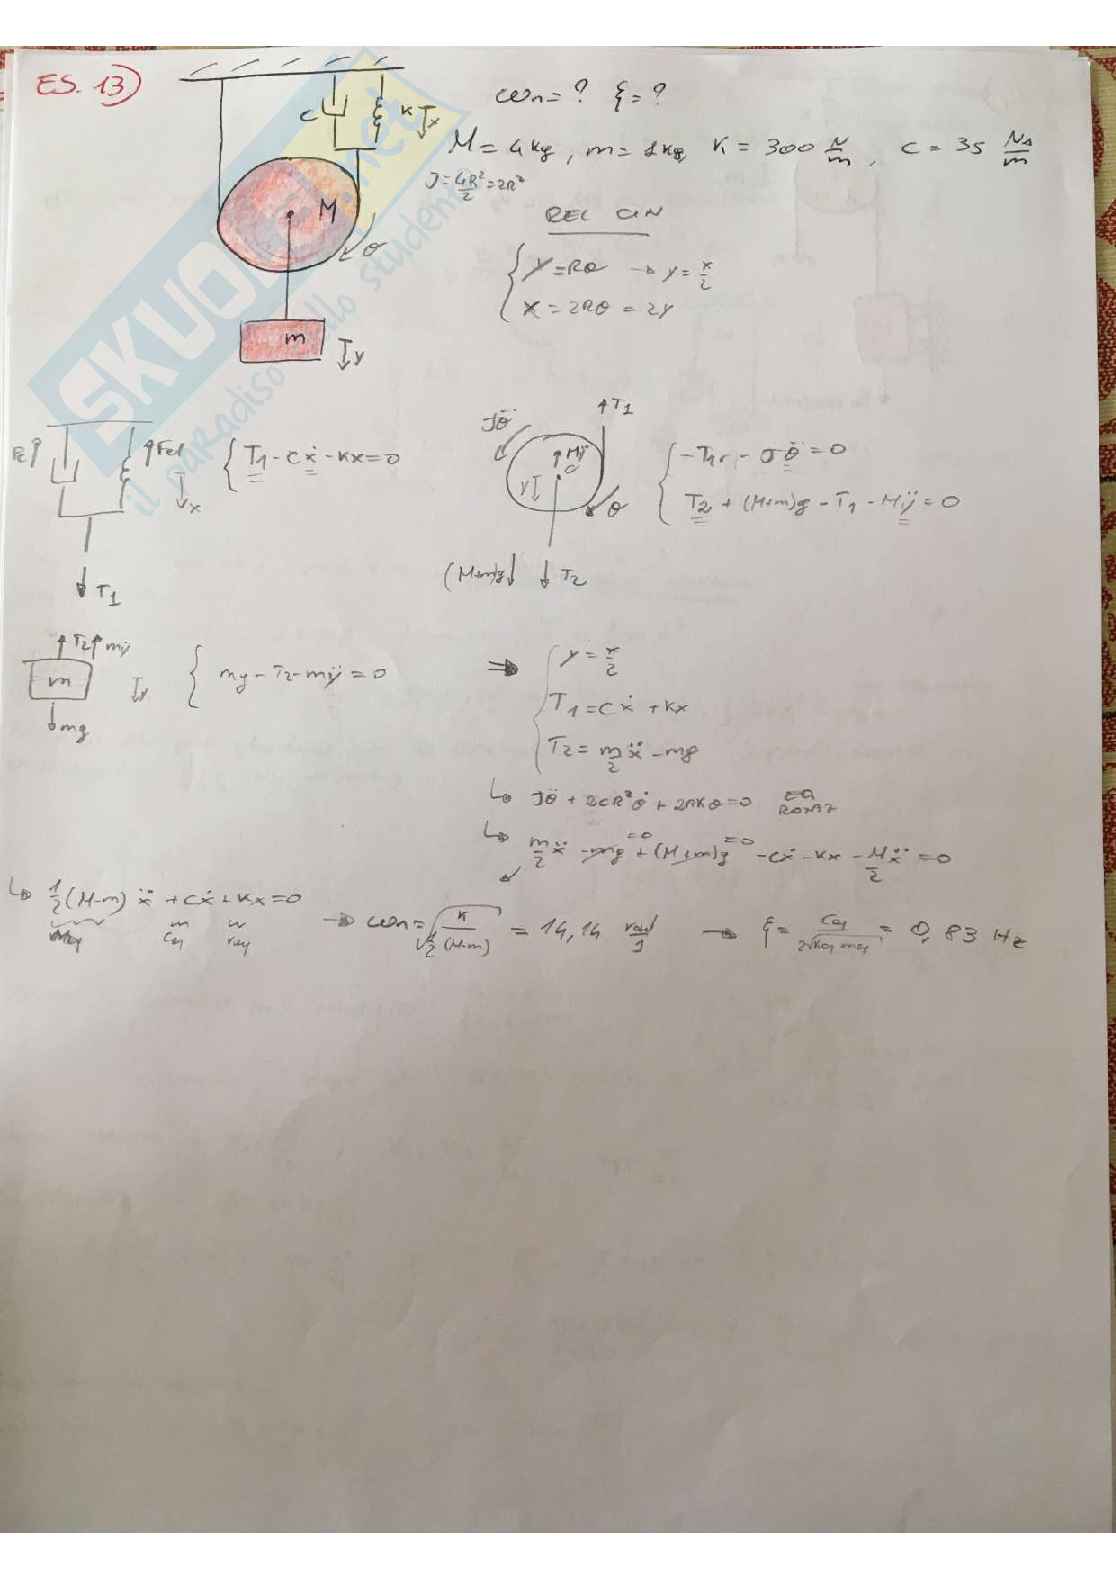 ES. 13)
ωn = ? ξ = ?
M = 4 kg, m = 1 kg, K = 300 N/m, c = 35 Ns/m
J = 4R²/2 = 2R²
REL CIN
y = Rθ → y = x/2
x = 2Rθ = 2y
c
K
x
M
θ
m
y
SKUOLA.net
il paradiso dello studente
Fc
Fel
x
T1
T1 - cẋ - Kx = 0
Jθ̈
T1
Mÿ
y
θ
(M+m)g
T2
-T1r - Jθ̈ = 0
T2 + (M+m)g - T1 - Mÿ = 0
T2 mÿ
m
y
mg
mg - T2 - mÿ = 0
⇒ y = x/2
T1 = cẋ + Kx
T2 = m/2 ẍ - mg
↳ Jθ̈ + 2cR²θ̇ + 2RKθ = 0 EQ ROTAZ
↳ m/2 ẍ - mg =0 + (M+m)g =0 - cẋ - Kx - M/2 ẍ = 0
↳ 1/2 (M-m) ẍ + cẋ + Kx = 0 → ωn = √(K / 1/2 (M-m)) = 14,14 rad/s → ξ = Ceq / 2√(Keq meq) = 0,83 Hz
Ceq Keq